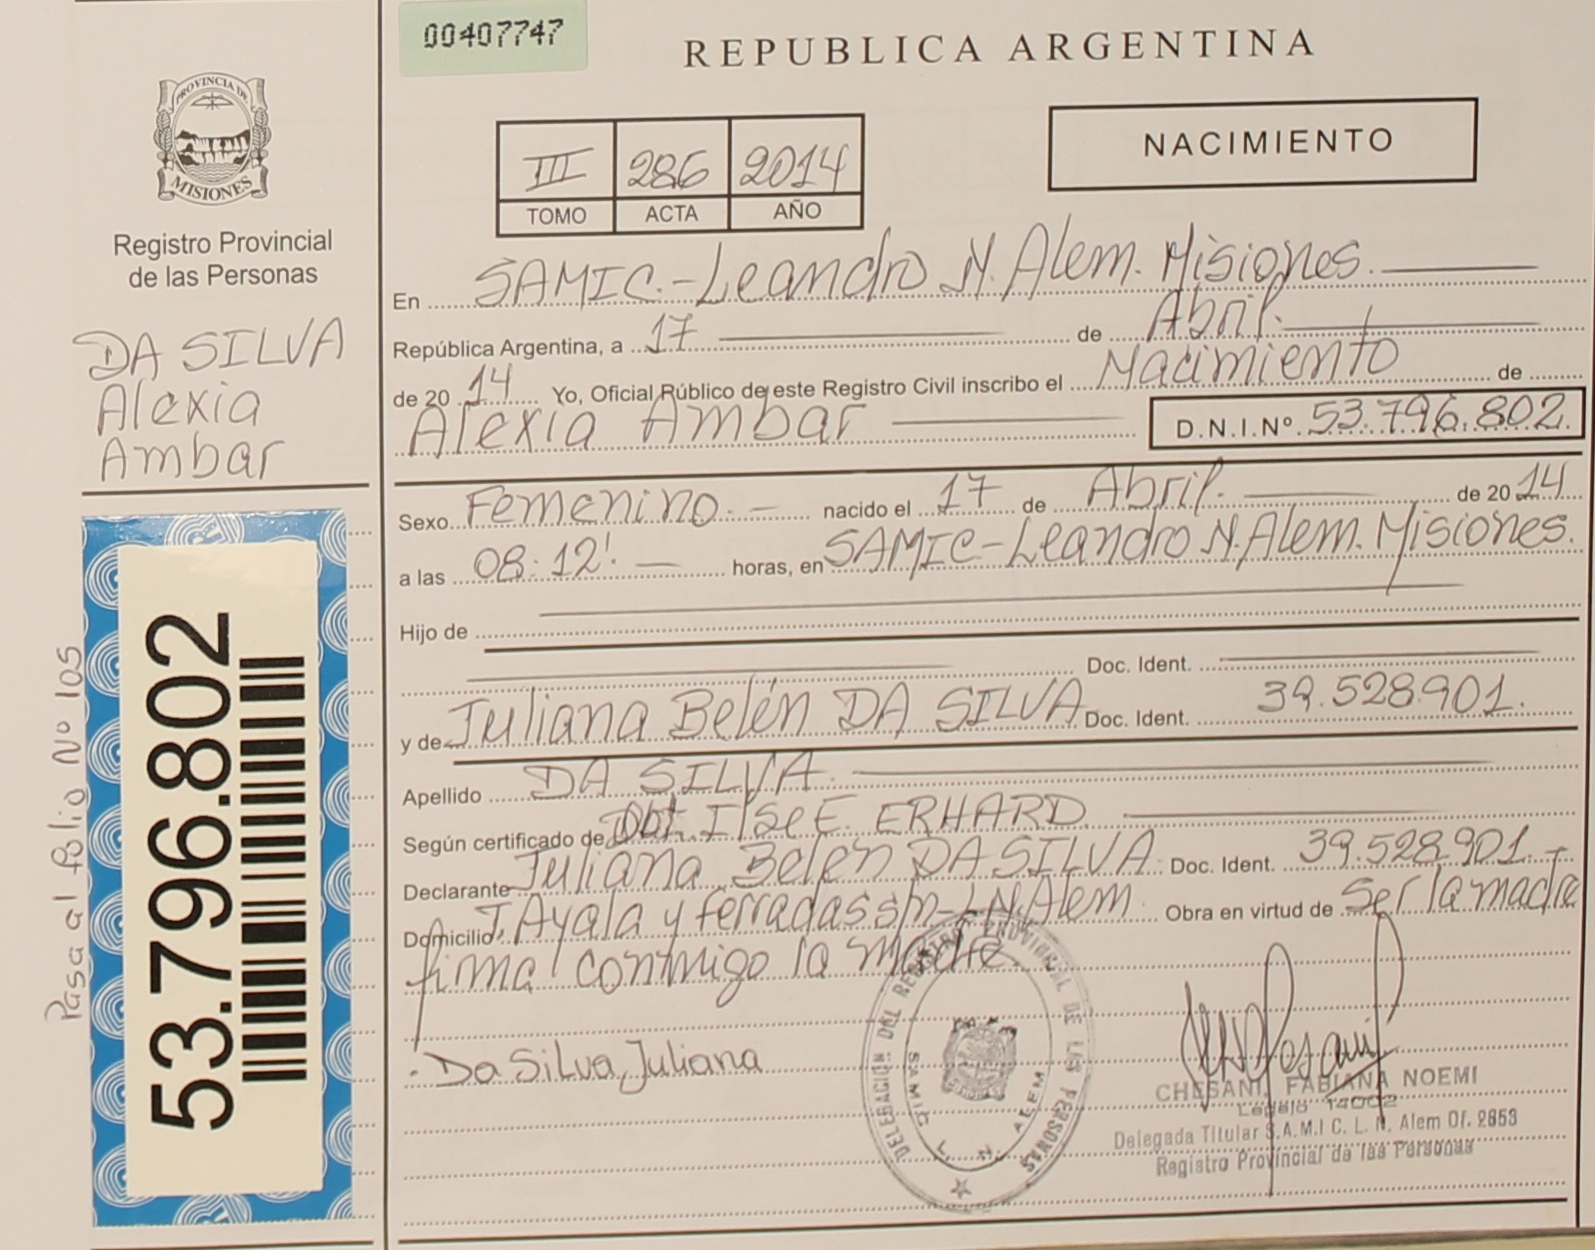 00407747
REPUBLICA ARGENTINA
PROVINCIA DE
MISIONES
Registro Provincial
de las Personas
DA SILVA
Alexia
Ambar
53.796.802
Pasa al folio Nº 105
III 286 2014
TOMO ACTA AÑO
NACIMIENTO
En SAMIC.-Leandro N. Alem. Misiones.
República Argentina, a 17 de Abril.
de 20 14 Yo, Oficial Público de este Registro Civil inscribo el Nacimiento de
Alexia Ambar D.N.I.Nº. 53.796.802.
Sexo Femenino.- nacido el 17 de Abril. de 20 14
a las 08:12! — horas, en SAMIC-Leandro N. Alem. Misiones.
Hijo de
Doc. Ident.
y de Juliana Belén DA SILVA Doc. Ident. 39.528.901.
Apellido DA SILVA.
Según certificado de Obt. Ilse E. ERHARD
Declarante Juliana Belén DA SILVA. Doc. Ident. 39.528.901.-
Domicilio J. Ayala y ferradas s/n-L.N.Alem. Obra en virtud de Ser la madre
firma conmigo la madre.
Da Silva, Juliana
DELEGACION DEL REGISTRO PROVINCIAL DE LAS PERSONAS
SAMIC L. N. ALEM
CHESANI, FABIANA NOEMI
Legajo 14002
Delegada Titular S.A.M.I C. L. N. Alem Of. 2853
Registro Provincial de las Personas